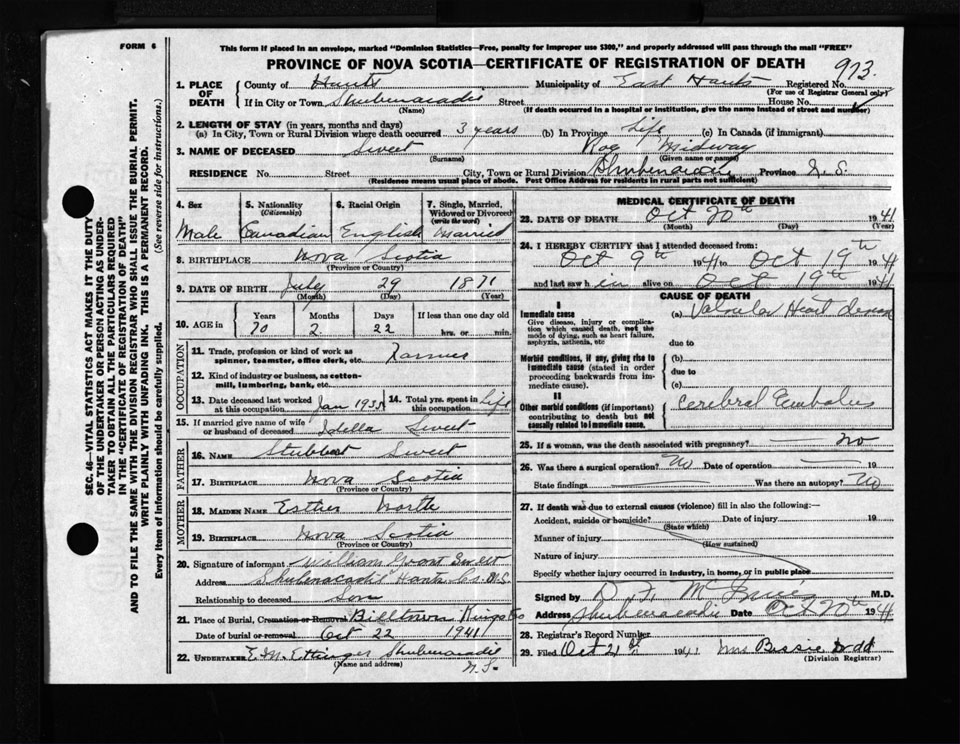 FORM 6
This form if placed in an envelope, marked "Dominion Statistics—Free, penalty for improper use $300," and properly addressed will pass through the mail "FREE"
PROVINCE OF NOVA SCOTIA—CERTIFICATE OF REGISTRATION OF DEATH
973.
1. PLACE OF DEATH County of Hants Municipality of East Hants Registered No.
(For use of Registrar General only)
If in City or Town Shubenacadie Street House No.
(Name) (If death occurred in a hospital or institution, give the name instead of street and number)
2. LENGTH OF STAY (in years, months and days)
(a) In City, Town or Rural Division where death occurred 3 years (b) In Province Life (c) In Canada (if immigrant)
3. NAME OF DECEASED Sweet Roy Midway
(Surname) (Given name or names)
RESIDENCE No. Street City, Town or Rural Division Shubenacadie Province N.S.
(Residence means usual place of abode. Post Office Address for residents in rural parts not sufficient)
4. Sex 5. Nationality (Citizenship) 6. Racial Origin 7. Single, Married, Widowed or Divorced (write the word)
Male Canadian English Married
8. BIRTHPLACE Nova Scotia
(Province or Country)
9. DATE OF BIRTH July 29 1871
(Month) (Day) (Year)
10. AGE in Years Months Days If less than one day old
70 2 22 hrs. or min.
OCCUPATION
11. Trade, profession or kind of work as spinner, teamster, office clerk, etc. Farmer
12. Kind of industry or business, as cotton-mill, lumbering, bank, etc.
13. Date deceased last worked at this occupation Jan 14. Total yrs. spent in this occupation Life
15. If married give name of wife or husband of deceased Idella Sweet
FATHER
16. NAME Sweet
17. BIRTHPLACE Nova Scotia
(Province or Country)
MOTHER
18. MAIDEN NAME Esther
19. BIRTHPLACE Nova Scotia
(Province or Country)
20. Signature of informant William Grant Sweet
Address Shubenacadie Hants Co. N.S.
Relationship to deceased Son
21. Place of Burial, Cremation or Removal Billtown Kings Co
Date of burial or removal Oct 22 1941
22. UNDERTAKER E.M. Ettinger Shubenacadie
(Name and address) N.S.
MEDICAL CERTIFICATE OF DEATH
23. DATE OF DEATH Oct 20th 1941
(Month) (Day)
24. I HEREBY CERTIFY that I attended deceased from:
Oct 9th 1941 to Oct 19th 1941
and last saw him alive on Oct 19th 1941
CAUSE OF DEATH
I
Immediate cause (a) Valvular Heart disease
Give disease, injury or complication which caused death, not the mode of dying, such as heart failure, asphyxia, asthenia, etc
due to
Morbid conditions, if any, giving rise to immediate cause (stated in order proceeding backwards from immediate cause).
(b)
due to
(c)
II
Other morbid conditions (if important) contributing to death but not causally related to immediate cause.
Cerebral Embolus
25. If a woman, was the death associated with pregnancy? no
26. Was there a surgical operation? No Date of operation 19
State findings Was there an autopsy? No
27. If death was due to external causes (violence) fill in also the following:—
Accident, suicide or homicide? Date of injury 19
(State which)
Manner of injury
(How sustained)
Nature of injury
Specify whether injury occurred in industry, in home, or in public place
Signed by M.D.
Address Shubenacadie Date Oct 20th 1941
28. Registrar's Record Number
29. Filed Oct 21st 1941 Mrs Bessie Dodd
(Division Registrar)
SEC. 46—VITAL STATISTICS ACT MAKES IT THE DUTY OF THE UNDERTAKER OR PERSON ACTING AS UNDERTAKER TO OBTAIN ALL THE PARTICULARS REQUIRED IN THE "CERTIFICATE OF REGISTRATION OF DEATH" AND TO FILE THE SAME WITH THE DIVISION REGISTRAR WHO SHALL ISSUE THE BURIAL PERMIT.
WRITE PLAINLY WITH UNFADING INK. THIS IS A PERMANENT RECORD.
Every item of Information should be carefully supplied. (See reverse side for instructions.)